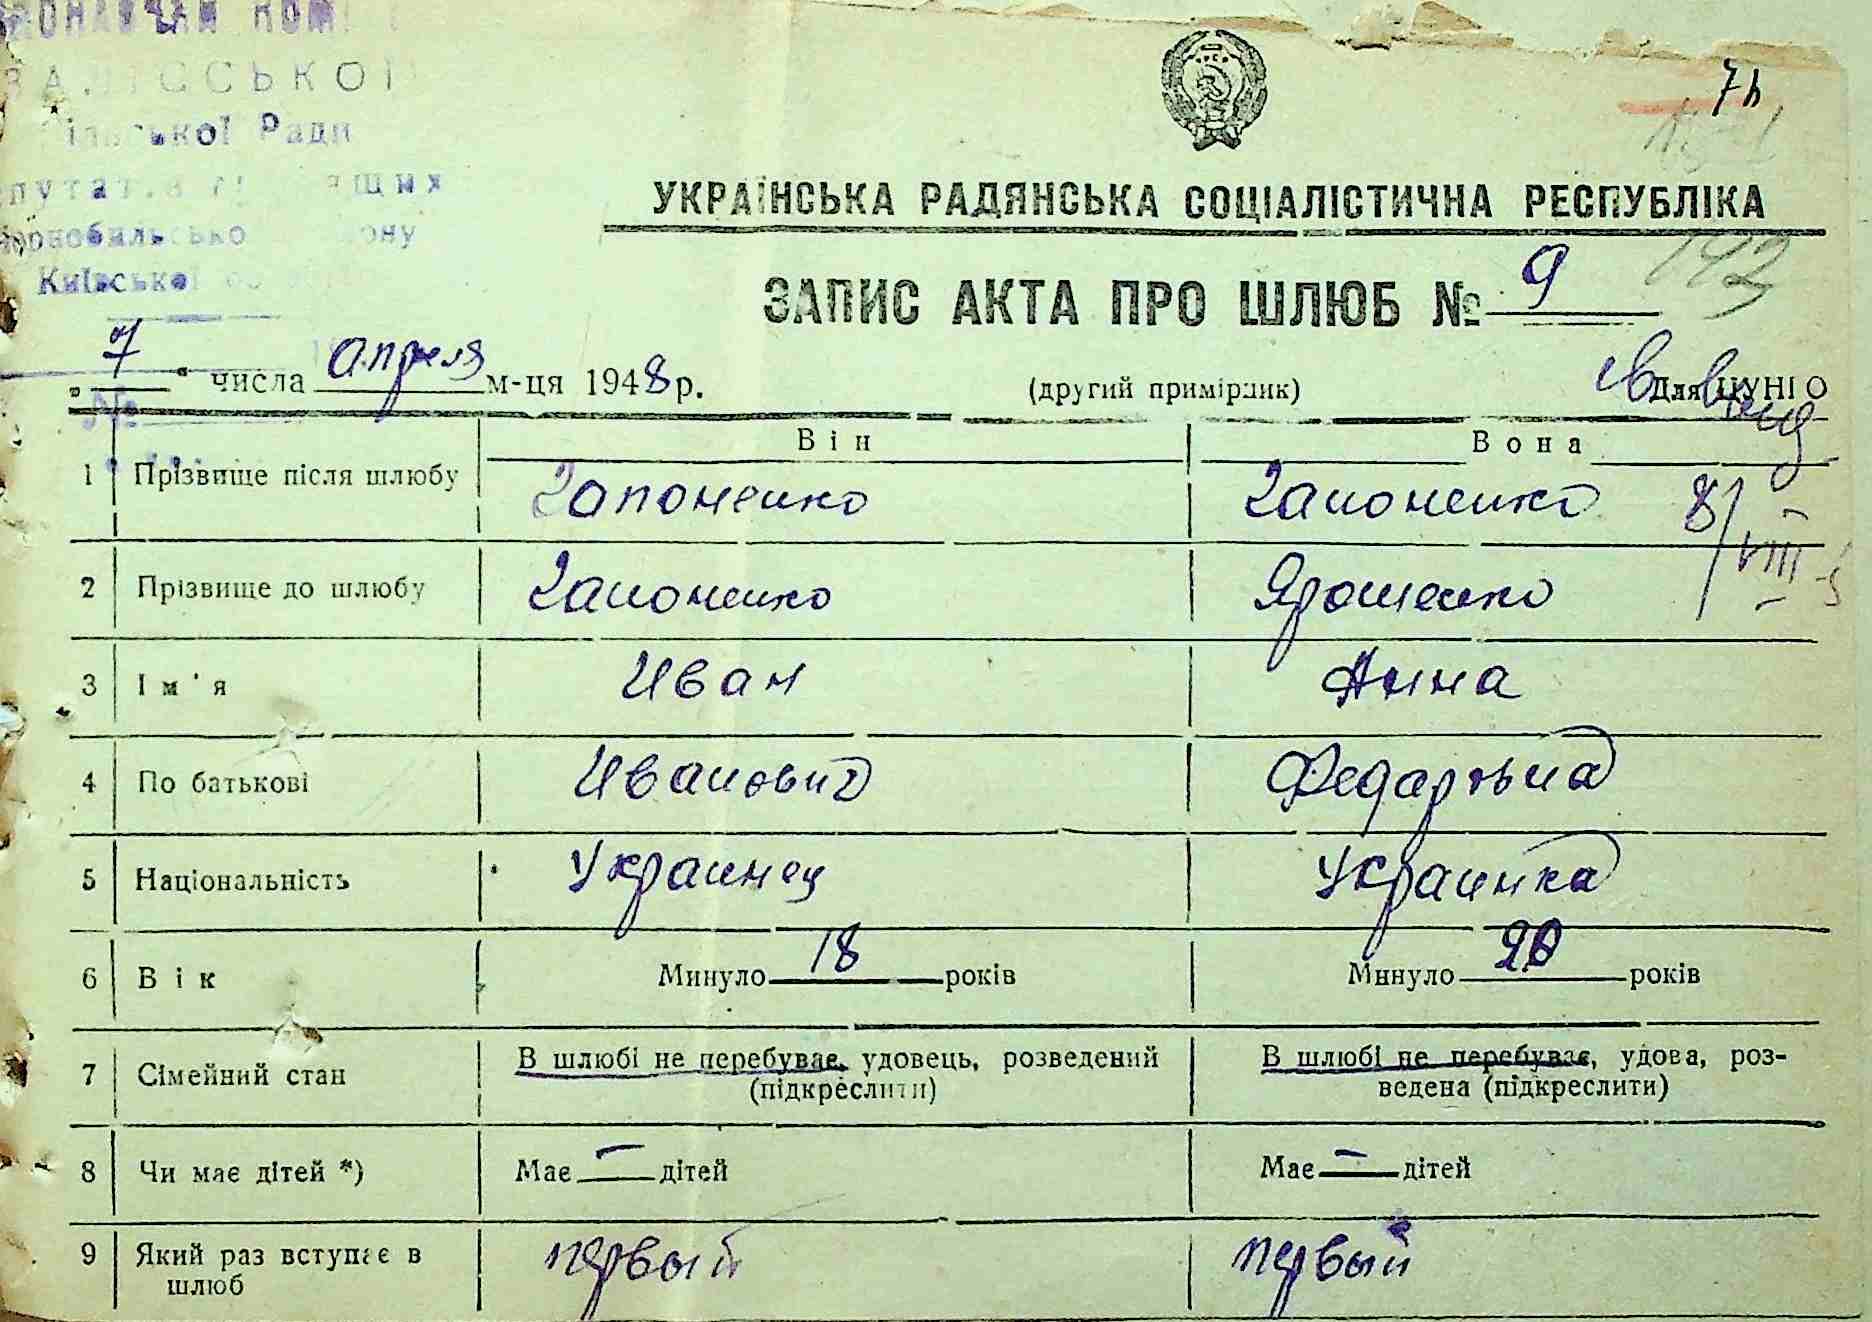 ЗАЛІССЬКОЇ
Сільської Ради
Київської
7 h
УКРАЇНСЬКА РАДЯНСЬКА СОЦІАЛІСТИЧНА РЕСПУБЛІКА
ЗАПИС АКТА ПРО ШЛЮБ № 9
142
"7" числа апреля м-ця 1948 р. (другий примірник) Для ЦУНГО
№
Він Вона
1 Прізвище після шлюбу Гапоненко Гапоненко 8/VIII
2 Прізвище до шлюбу Гапоненко Ярошенко
3 Ім'я Иван Анна
4 По батькові Иванович Федаровна
5 Національність Украинец Украинка
6 Вік Минуло 18 років Минуло 20 років
7 Сімейний стан В шлюбі не перебуває, удовець, розведений В шлюбі не перебуває, удова, роз-
(підкреслити) ведена (підкреслити)
8 Чи має дітей *) Має — дітей Має — дітей
9 Який раз вступає в первый первый
шлюб